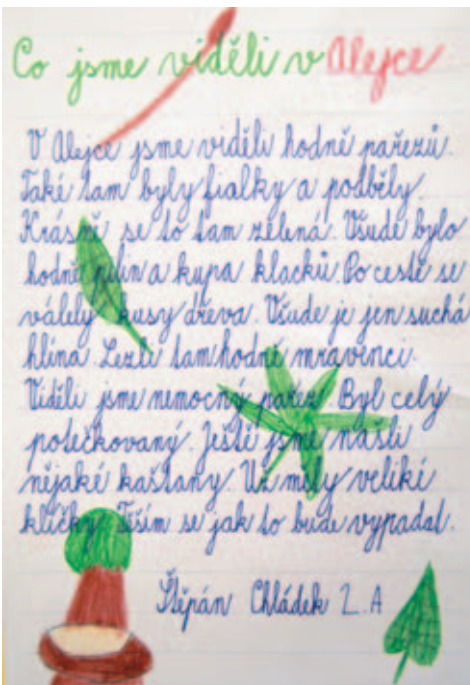 Co jsme viděli v Alejce
V Alejce jsme viděli hodně pařezů.
Také tam byly fialky a podběly.
Krásně se to tam zelená. Všude bylo
hodně pilin a kupa klacků. Po cestě se
válely kusy dřeva. Všude je jen suchá
hlína. Lezli tam hodně mravenci.
Viděli jsme nemocný pařez. Byl celý
potečkovaný. Ještě jsme našli
nějaké kaštany. Už měly veliké
klíčky. Těším se jak to bude vypadat.
Štěpán Chládek 2.A